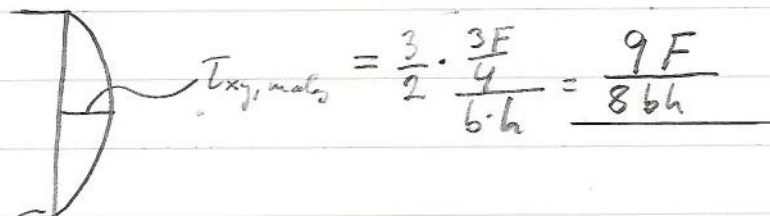 τxy,maks = 3/2 · (3F/4)/(b·h) = 9F/8bh